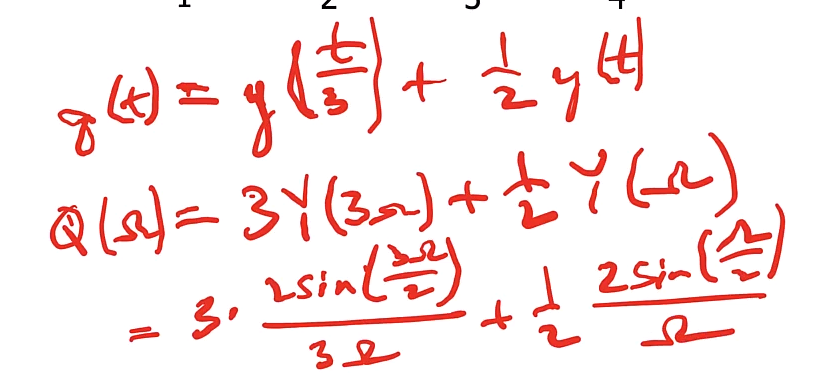 1 2 3 4
q(t) = y(t/3) + 1/2 y(t)
Q(Ω) = 3Y(3Ω) + 1/2 Y(Ω)
= 3· 2sin(3Ω/2)/3Ω + 1/2 2sin(Ω/2)/Ω